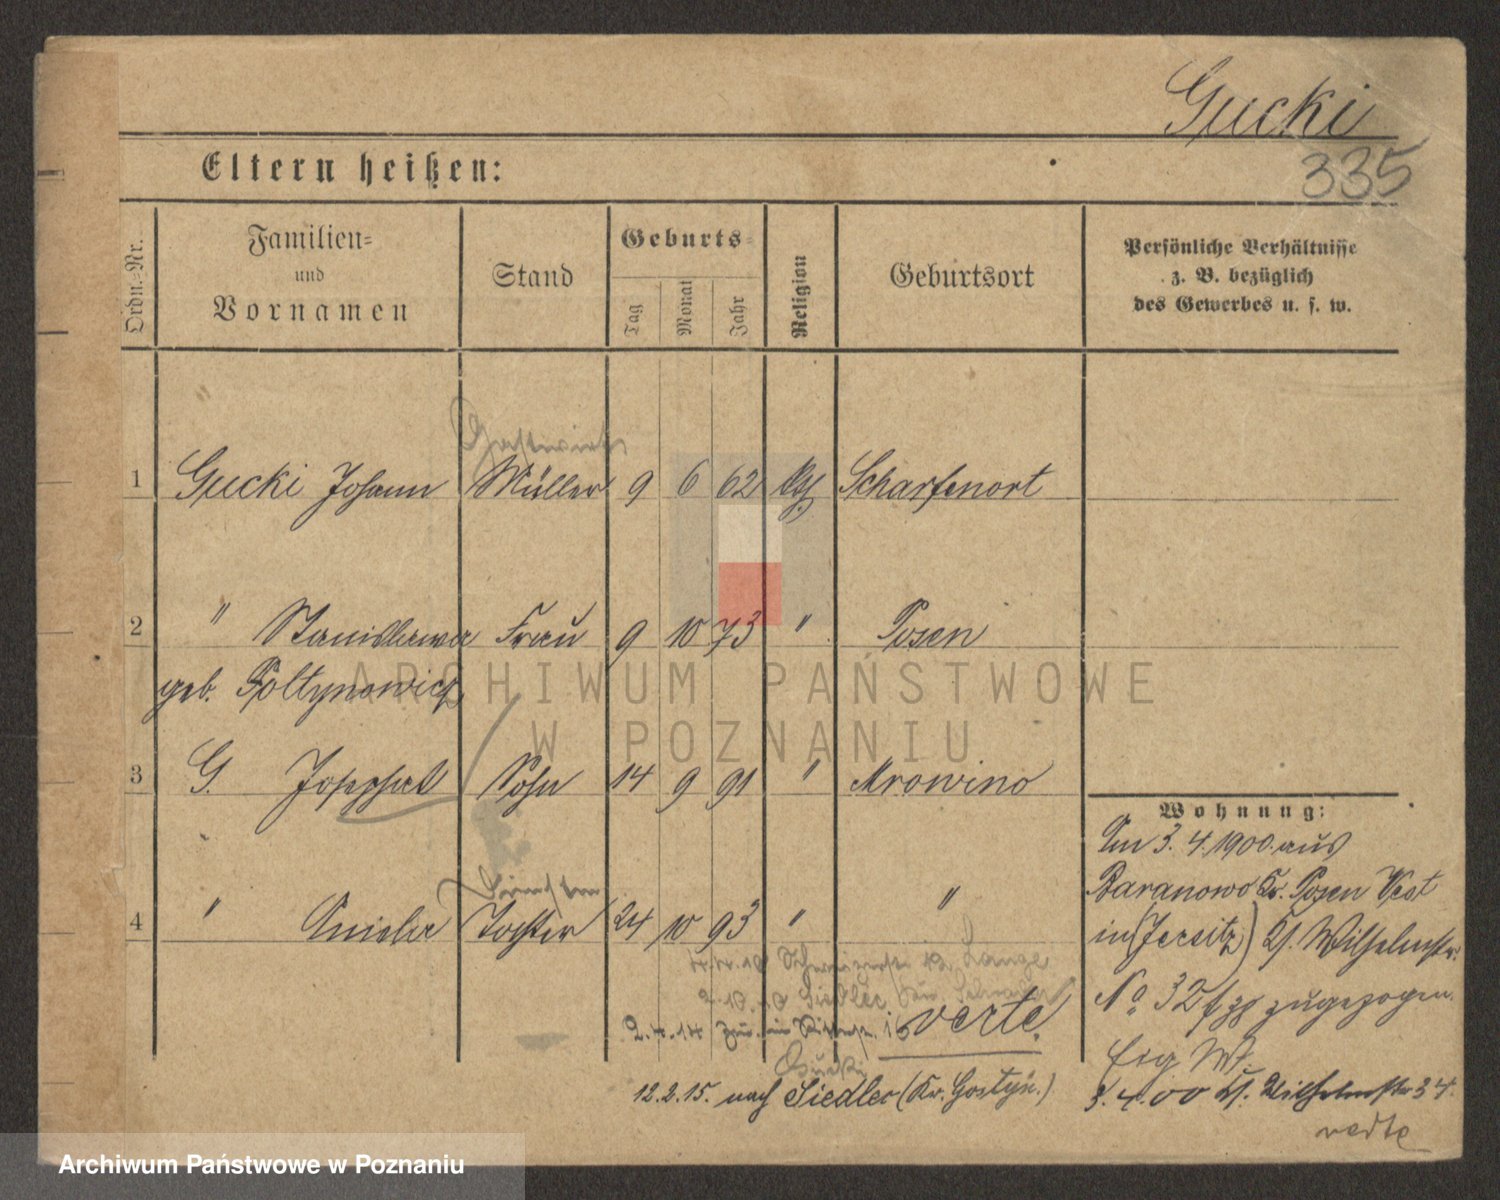 Gucki
335
Eltern heißen:
Ordn.-Nr.
Familien-
und
Vornamen
Stand
Geburts-
Tag
Monat
Jahr
Religion
Geburtsort
Persönliche Verhältnisse
z. B. bezüglich
des Gewerbes u. s. w.
Gastwirth
1 Gucki Johann Müller 9 6 62 kath Scharfenort
2 " Stanislawa Frau 9 10 73 " Posen
geb. Poltynowicz
3 G. Josephat Sohn 14 9 91 " Mrowino
4 " Aniela Tochter 24 10 93 " "
Wohnung:
Am 3. 4. 1900 aus
Baranowo Kr. Posen West
in (Jersitz) Gr. Wilhelmstr.
No. 32 zugezogen.
3. 4. 00 Gr. Wilhelmstr 34.
verte
Lange
2. 10. 10 Siedlec
2. 4. 14 16
verte
Gucki
12. 2. 15. nach Siedlec (Kr. Gostyn.)
ARCHIWUM PAŃSTWOWE
W POZNANIU
Archiwum Państwowe w Poznaniu